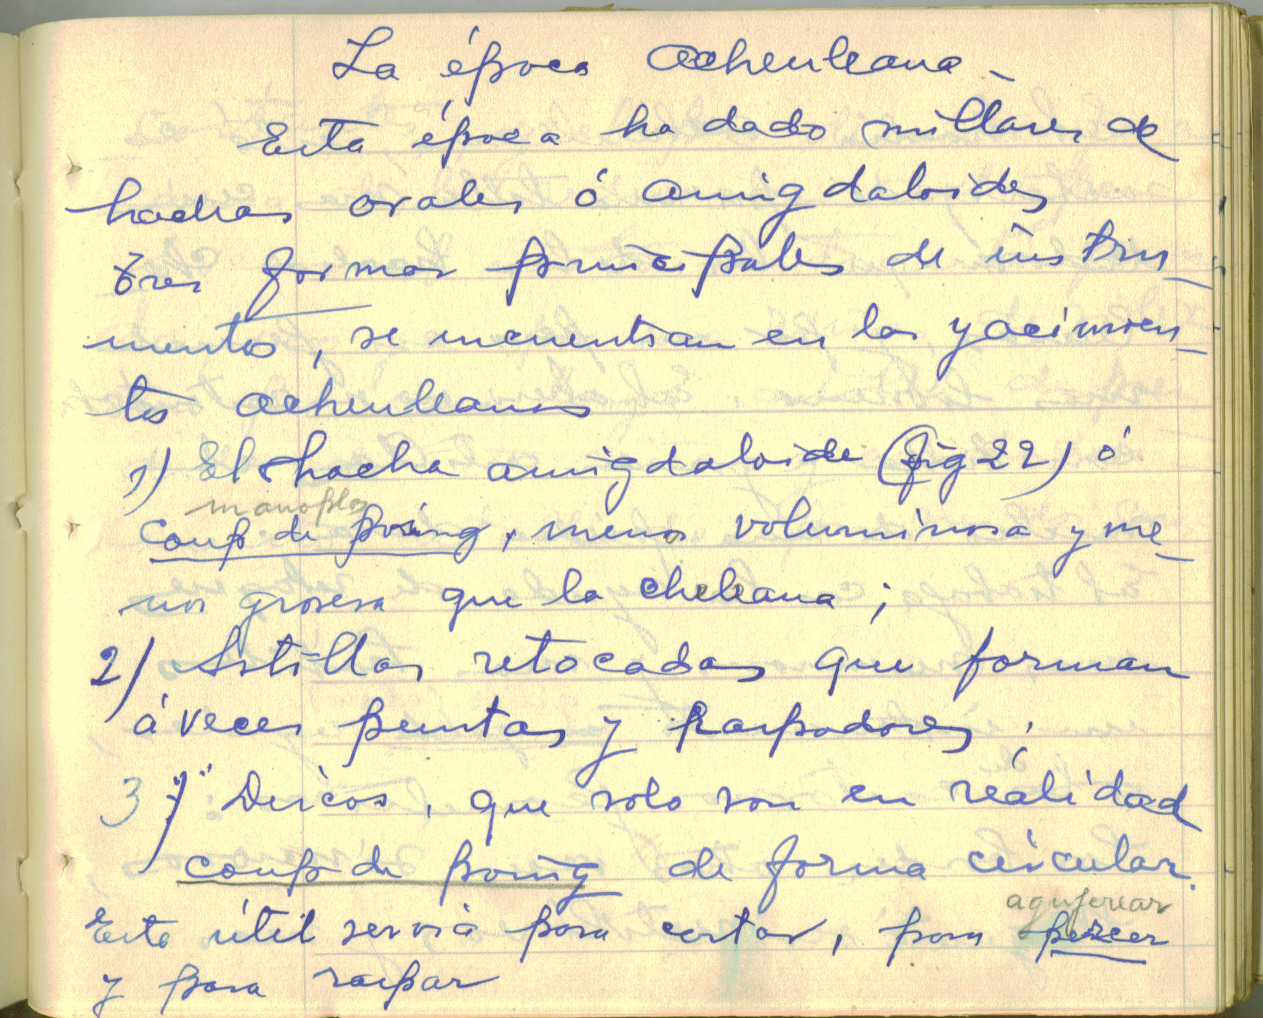 La época acheuleana_
Esta época ha dado millares de
hachas ovales ó amigdaloides
tres formas principales de instru_
mentos, se encuentran en los yacimien_
tos acheuleanos
1) El hacha amigdaloide (fig 22) ó
manopla
coup de poing, menos voluminosa y me_
nos grosera que la cheleana ;
2) Astillas retocadas que forman
á veces puntas y raspadores ;
3) Discos, que solo son en realidad
coup de poing de forma circular.
agujerear
Este útil servía para cortar, para percer
y para raspar